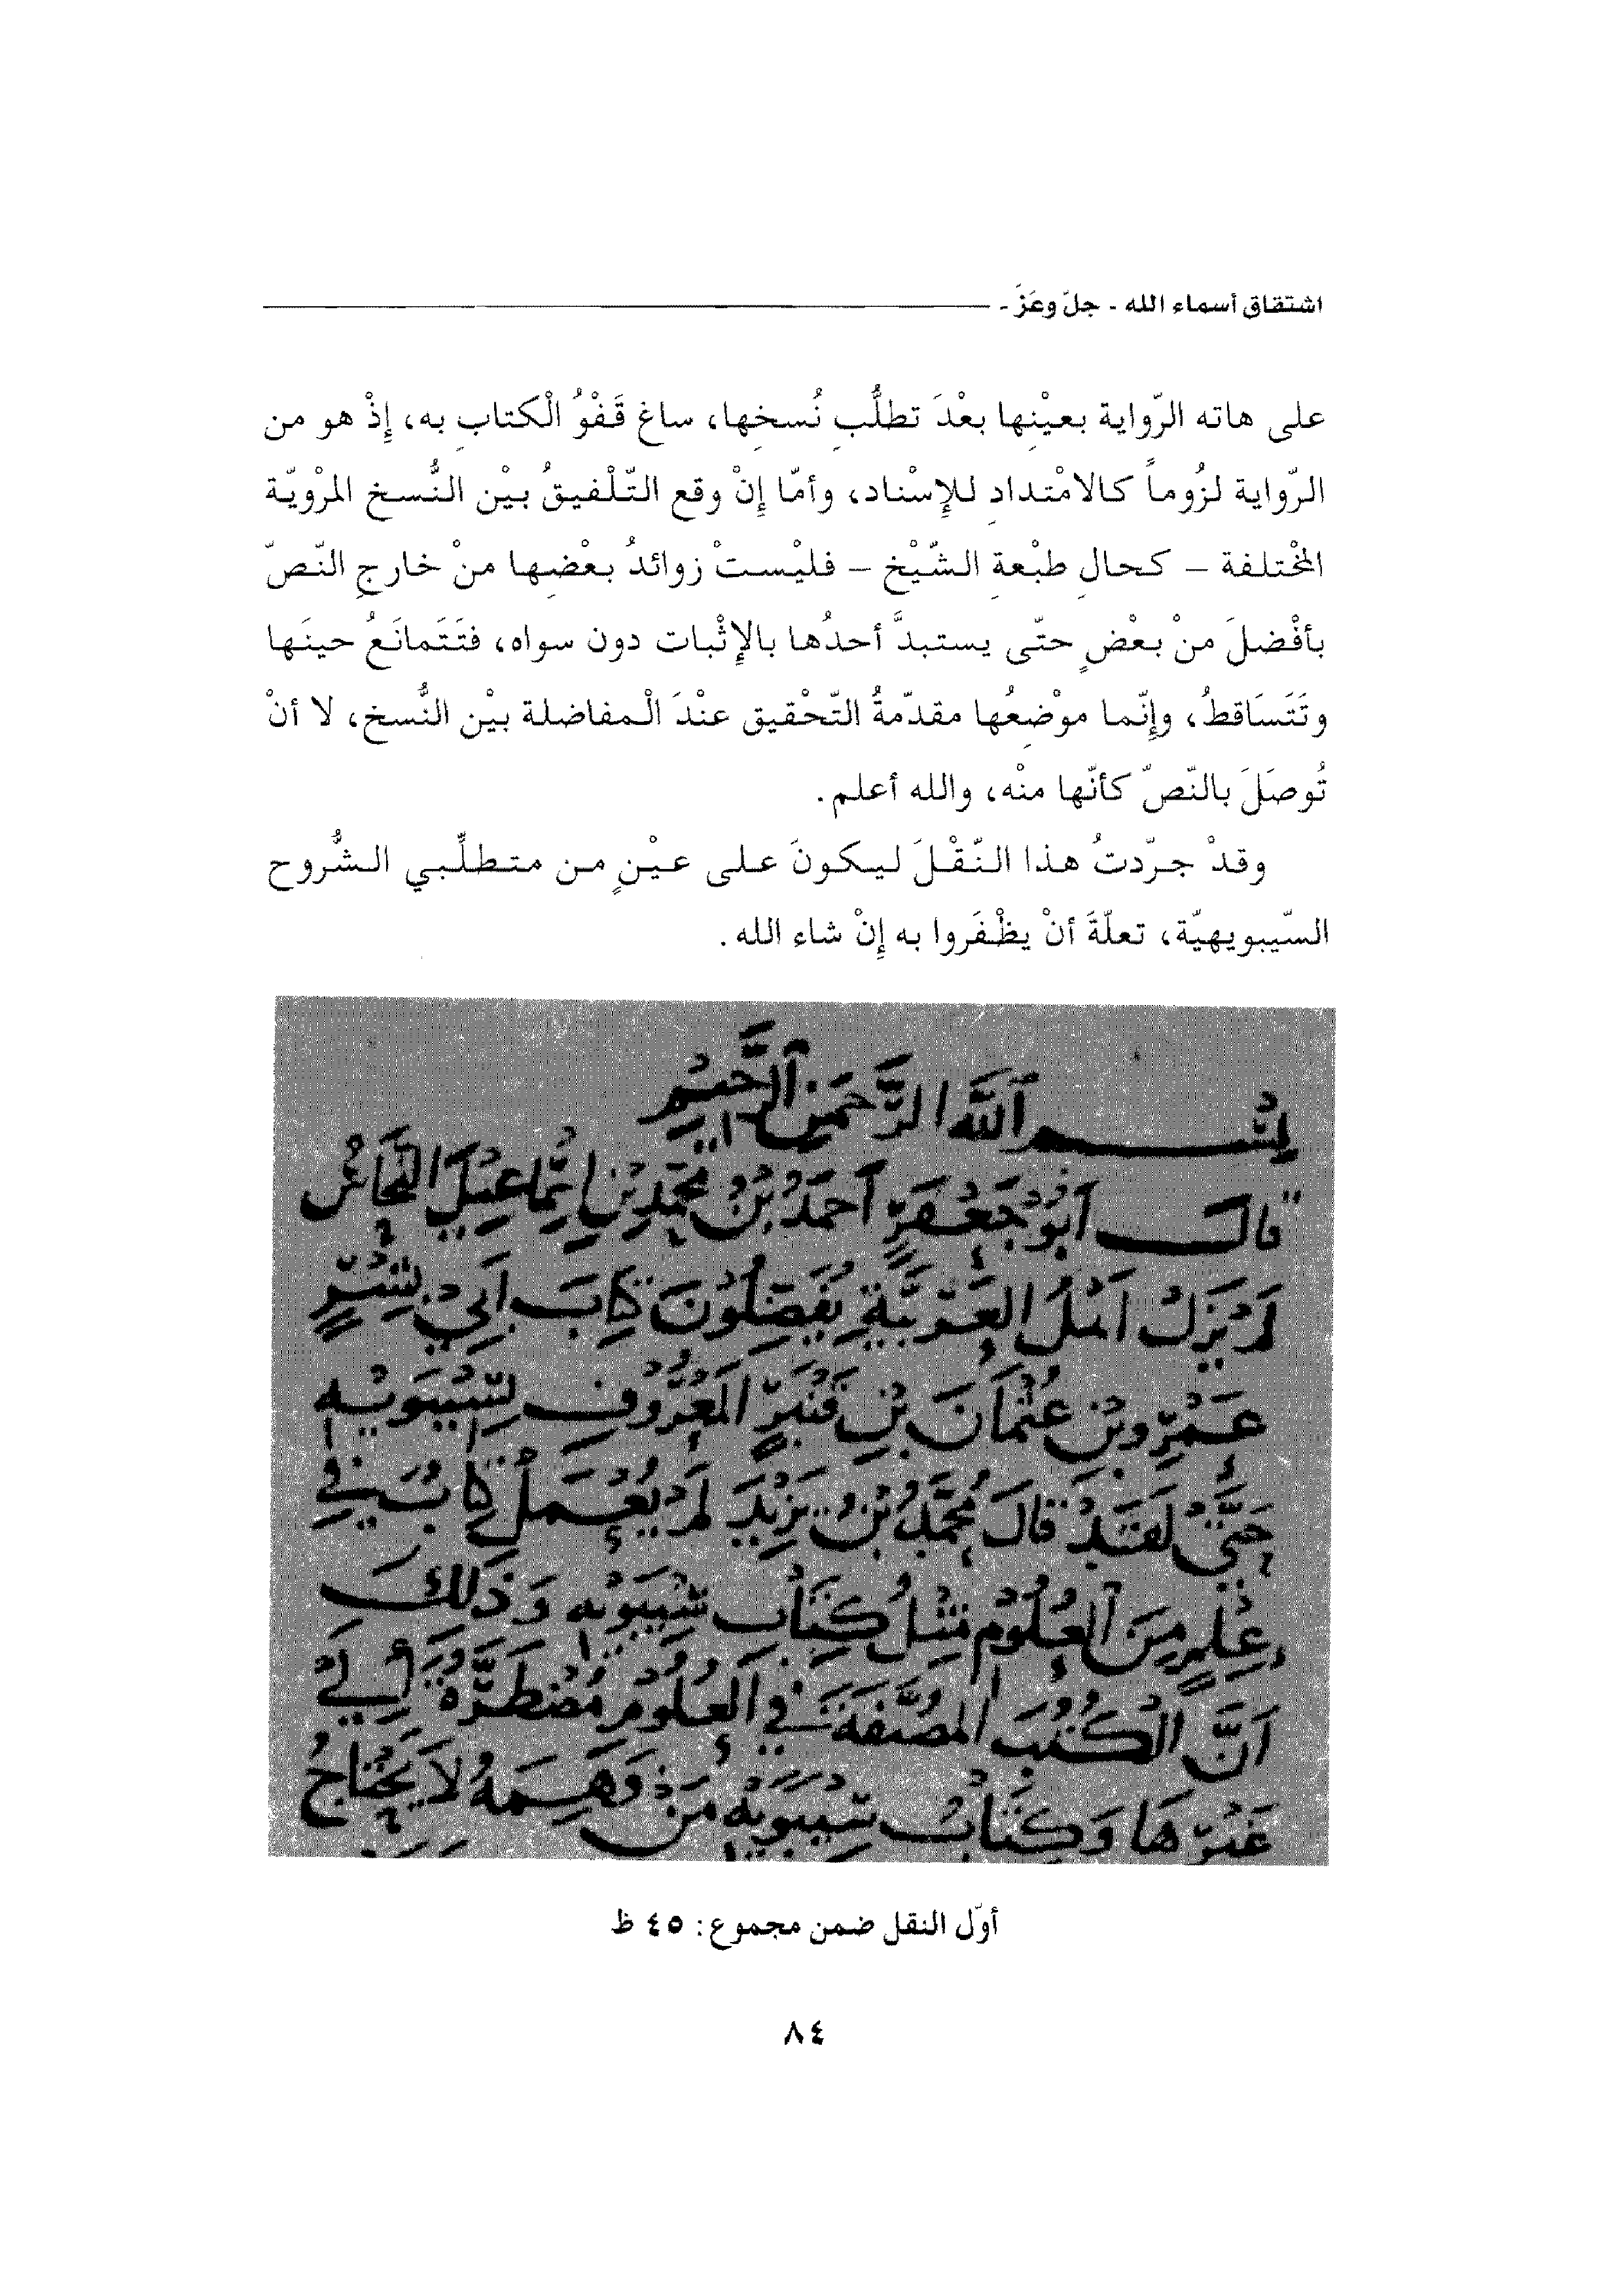 اشتقاق أسماء الله - جلّ وعَزّ -
على هاته الرّواية بعيْنِها بعْدَ تطلُّبِ نُسخِها، ساغ قَفْوُ الْكتابِ به، إِذْ هو من
الرّواية لزُوماً كالامْتدادِ للإِسْناد، وأمّا إِنْ وقع التّلْفيقُ بيْن النُّسخ المرْويّة
المخْتلفة – كحالِ طبْعةِ الشّيْخ – فليْستْ زوائدُ بعْضِها منْ خارجِ النّصّ
بأفْضلَ منْ بعْضٍ حتّى يستبدَّ أحدُها بالإِثْبات دون سواه، فتَتَمانَعُ حينَها
وتَتَسَاقطُ، وإِنّما موْضِعُها مقدّمةُ التّحْقيق عنْدَ الْمفاضلة بيْن النُّسخ، لا أنْ
تُوصَلَ بالنّصّ كأنّها منْه، والله أعلم.
وقدْ جرّدتُ هذا النّقْلَ ليكونَ على عيْنٍ من متطلِّبي الشُّروح
السّيبويهيّة، تعلّةَ أنْ يظْفَروا به إِنْ شاء الله.
بِسْم اللَّه الرَّحمَن الرَّحيْم
قالَ أَبُوْ جَعْفَرٍ أَحمَدُ بْنُ مُحَمَّدِ بْنِ إِسْمَاعِيْلَ النَّحَّاسُ
لَمْ يَزَلْ أَهْلُ العَرَبيَّةِ يُفَضِّلُوْنَ كِتابَ أَبيْ بِشْرٍ
عَمْرِو بْنِ عُثْمَانَ بْنِ قَنْبَرٍ الْمَعْرُوْفِ بِسِيْبَوَيْهِ
حَتَّىْ لَقَدْ قَالَ مُحَمَّدُ بْنُ يَزِيْدَ لَمْ يُعْمَلْ كِتَابٌ فِيْ
عِلْمٍ مِنَ العُلُوْمِ مِثْلُ كِتَابِ سِيْبَوَيْهِ وَذَلِكَ
أَنَّ الْكُتُبَ الْمُصَنَّفَةَ فِي العُلُوْمِ مُضْطَرَّةٌ إِلَىْ
غَيْرِهَا وَكِتَابُ سِيْبَوَيْهِ مَنْ فَهِمَهُ لَا يَحْتَاجُ
أوّل النقل ضمن مجموع: ٤٥ ظ
٨٤